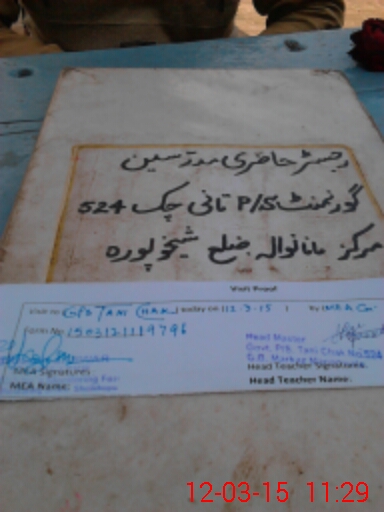 رجسٹر حاضری مدرسین
گورنمنٹ P/S تانی چک 524
مرکز مانانوالہ ضلع شیخوپورہ
Visit Proof
Visit to GPS TANI CHAK today on 12-3-15 | By MEA
Form No 1503121119796
Head Master
MEA Signatures
Head Teacher Signatures.
MEA Name:
Head Teacher Name.
12-03-15 11:29